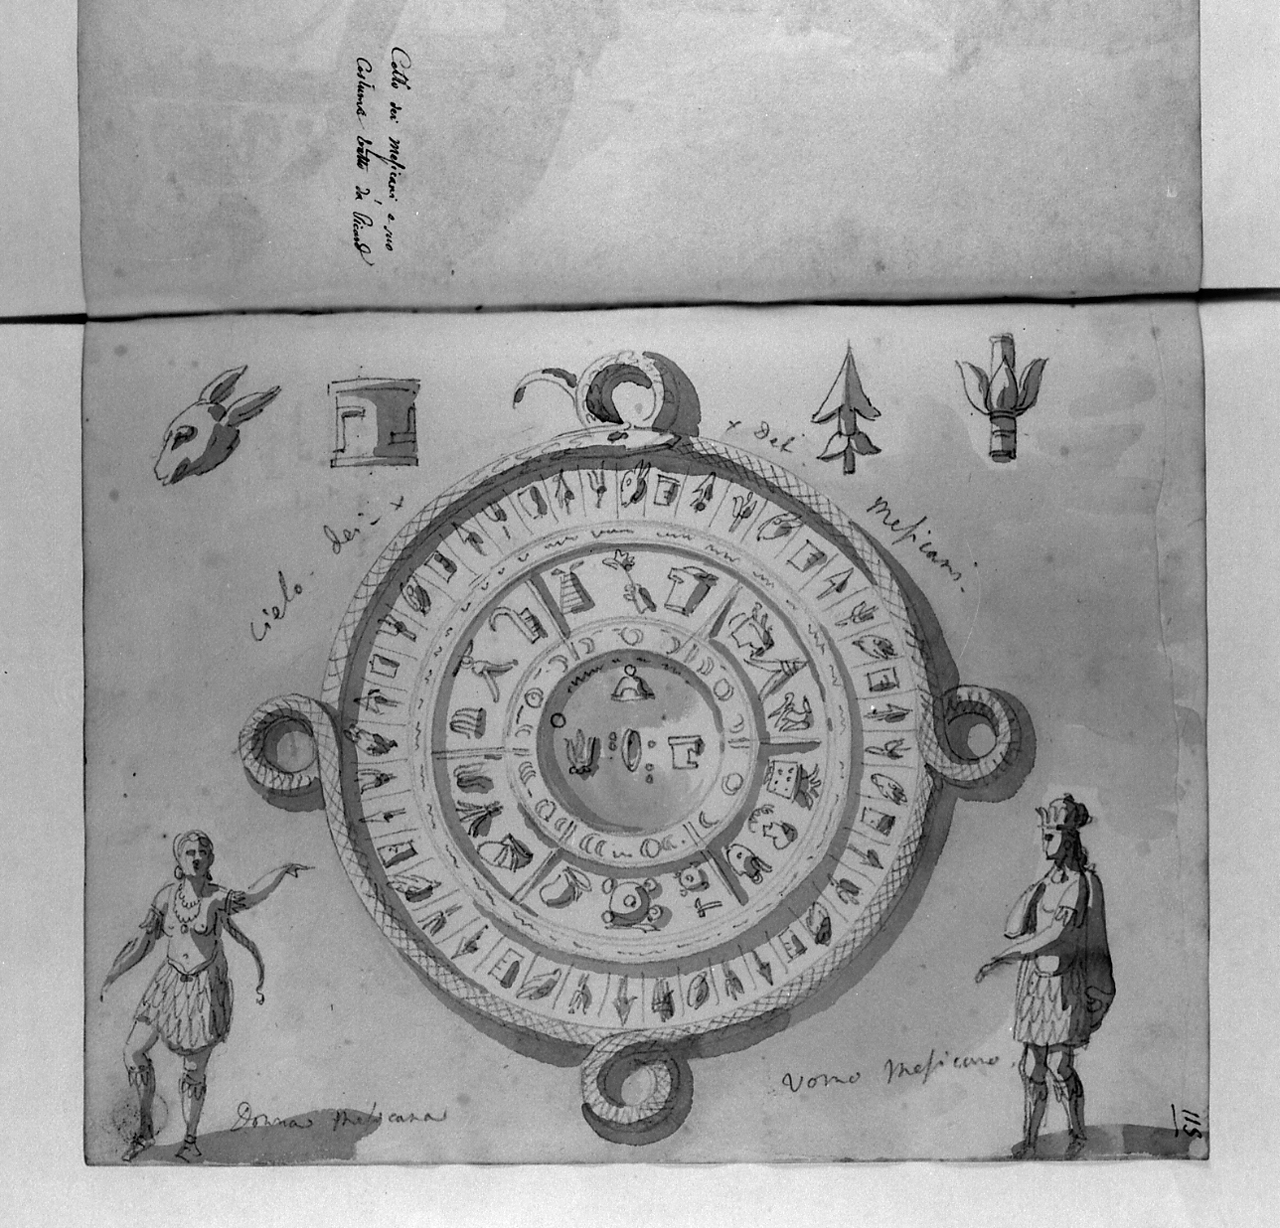 Culto dei Messicani e suo
Costume tratto da Picard
Cielo dei + + dei
Messicani
Donna Messicana
Uomo Messicano
115